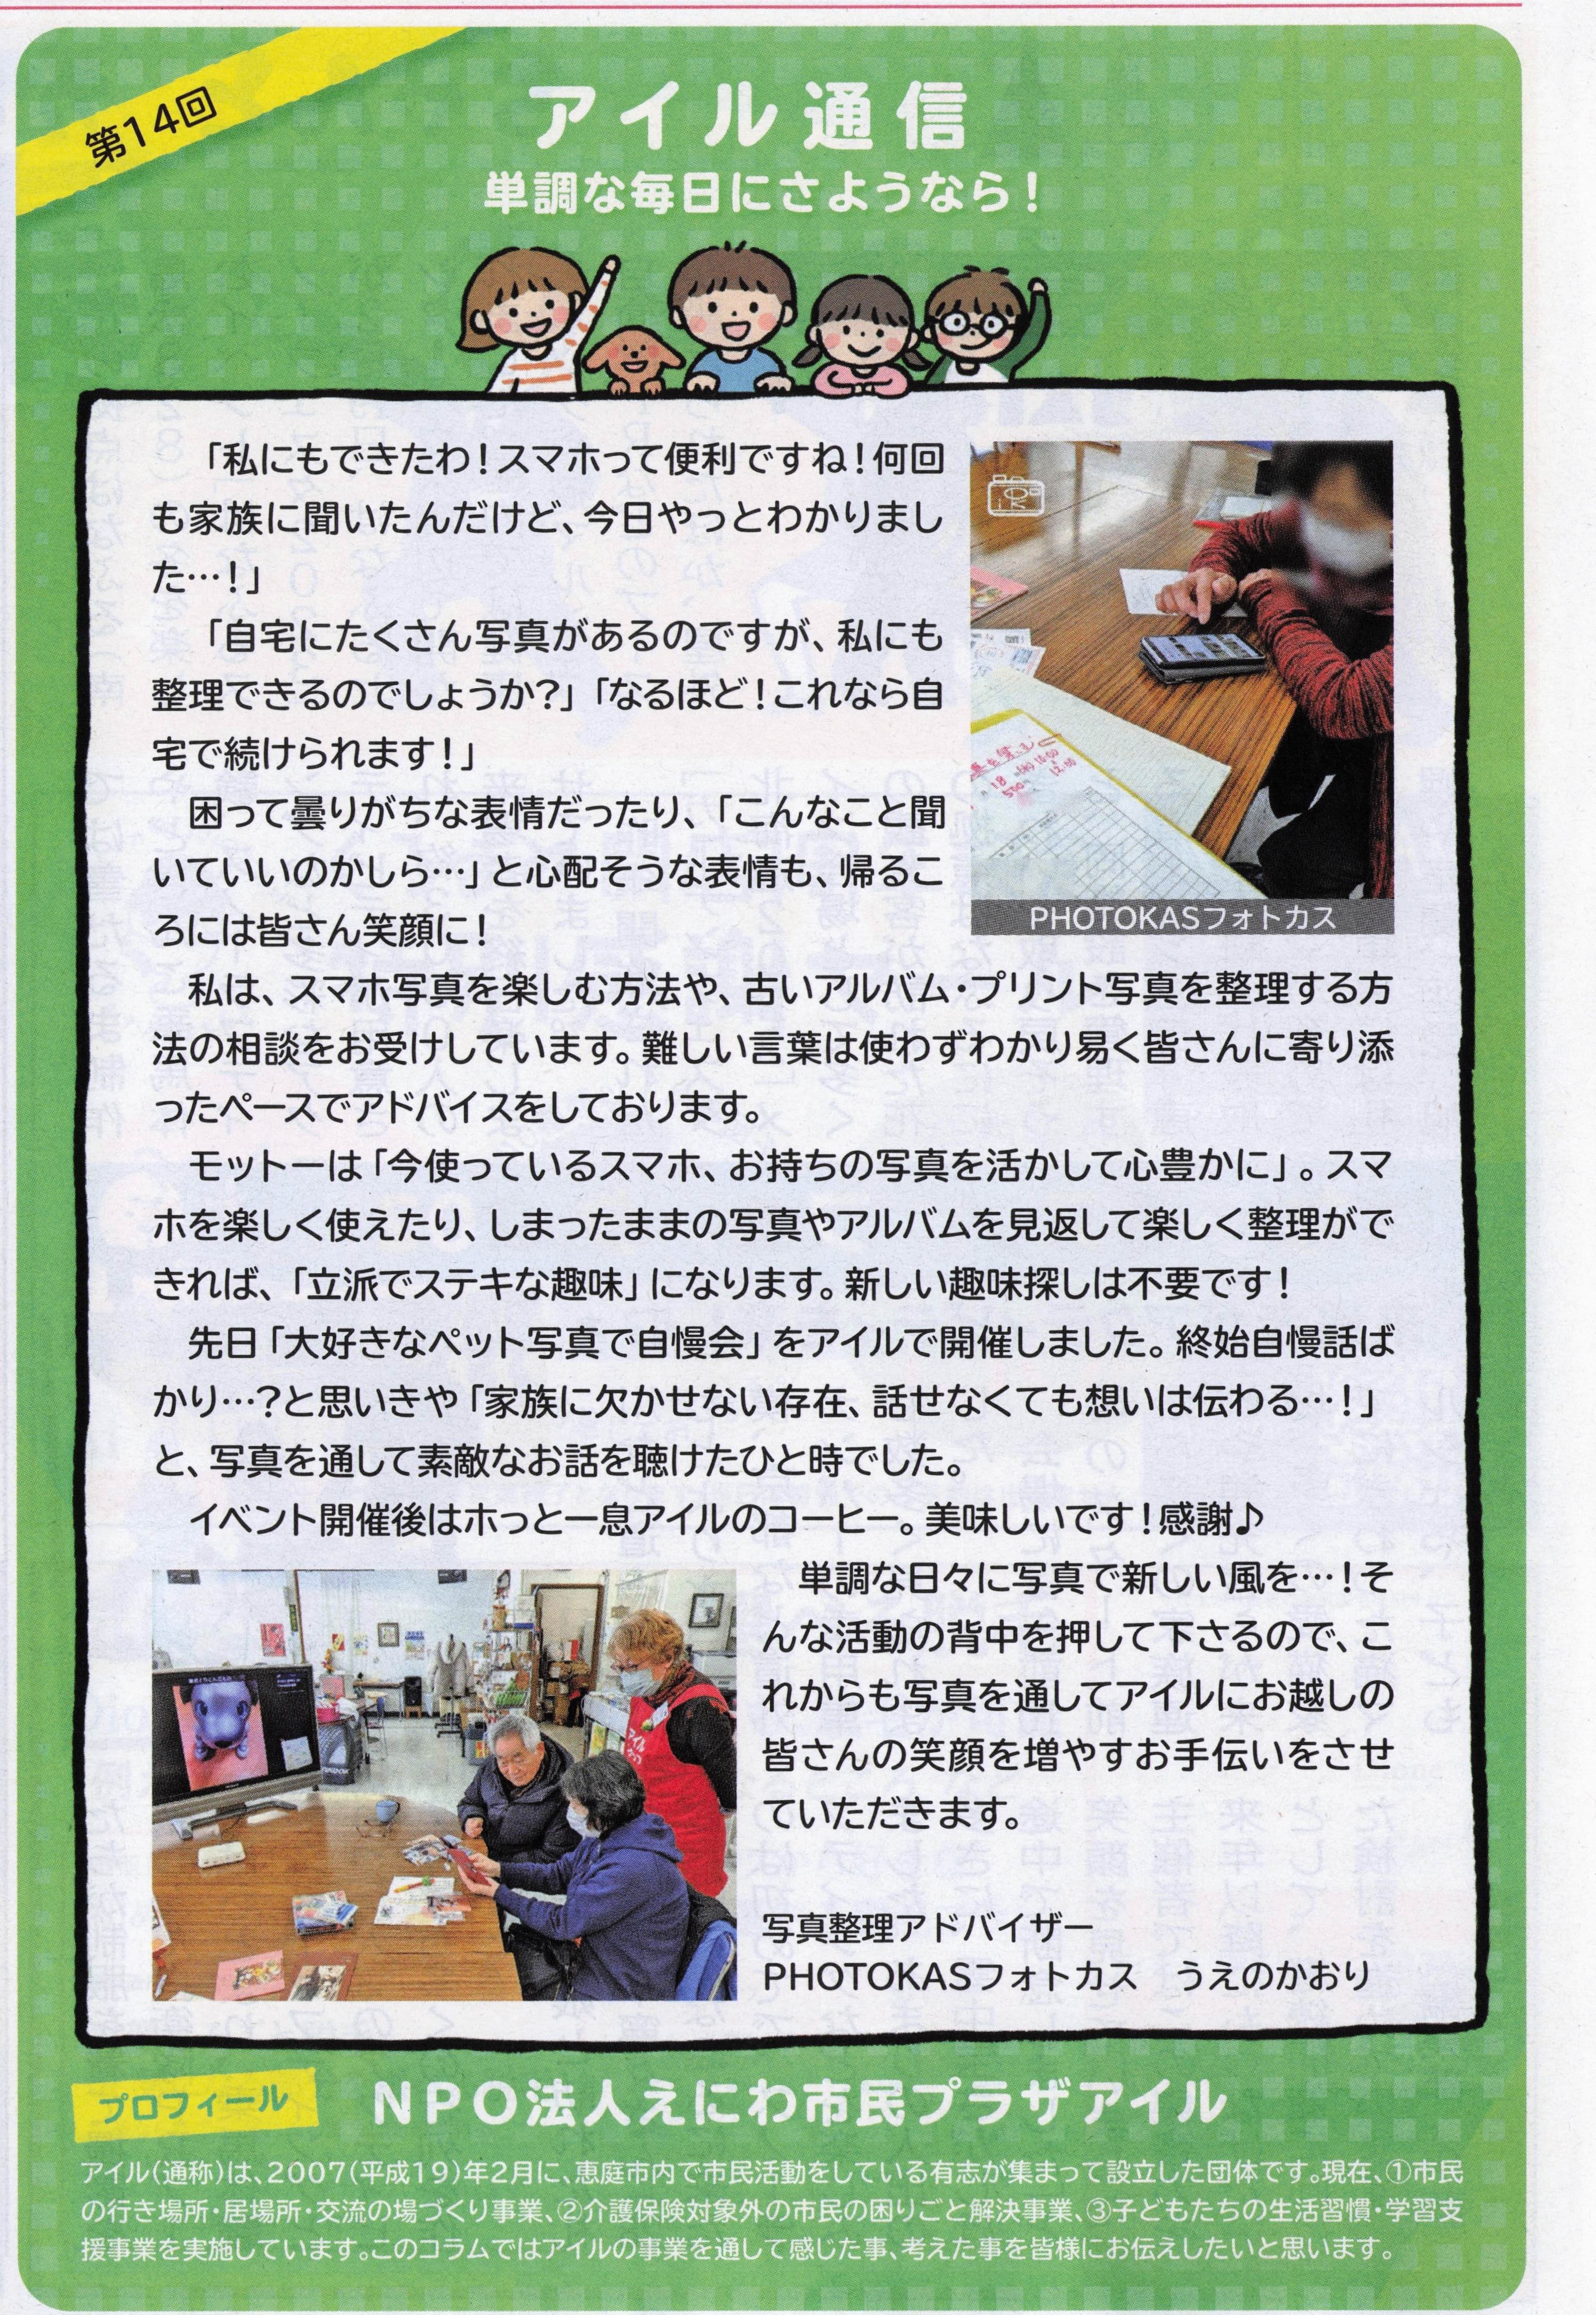 第14回
アイル通信
単調な毎日にさようなら！
「私にもできたわ！スマホって便利ですね！何回
も家族に聞いたんだけど、今日やっとわかりまし
た…！」
「自宅にたくさん写真があるのですが、私にも
整理できるのでしょうか？」「なるほど！これなら自
宅で続けられます！」
困って曇りがちな表情だったり、「こんなこと聞
いていいのかしら…」と心配そうな表情も、帰るこ
ろには皆さん笑顔に！
PHOTOKASフォトカス
私は、スマホ写真を楽しむ方法や、古いアルバム・プリント写真を整理する方
法の相談をお受けしています。難しい言葉は使わずわかり易く皆さんに寄り添
ったペースでアドバイスをしております。
モットーは「今使っているスマホ、お持ちの写真を活かして心豊かに」。スマ
ホを楽しく使えたり、しまったままの写真やアルバムを見返して楽しく整理がで
きれば、「立派でステキな趣味」になります。新しい趣味探しは不要です！
先日「大好きなペット写真で自慢会」をアイルで開催しました。終始自慢話ば
かり…？と思いきや「家族に欠かせない存在、話せなくても想いは伝わる…！」
と、写真を通して素敵なお話を聴けたひと時でした。
イベント開催後はホっと一息アイルのコーヒー。美味しいです！感謝♪
単調な日々に写真で新しい風を…！そ
んな活動の背中を押して下さるので、こ
れからも写真を通してアイルにお越しの
皆さんの笑顔を増やすお手伝いをさせ
ていただきます。
写真整理アドバイザー
PHOTOKASフォトカス　うえのかおり
プロフィール
NPO法人えにわ市民プラザアイル
アイル（通称）は、2007（平成19）年2月に、恵庭市内で市民活動をしている有志が集まって設立した団体です。現在、①市民
の行き場所・居場所・交流の場づくり事業、②介護保険対象外の市民の困りごと解決事業、③子どもたちの生活習慣・学習支
援事業を実施しています。このコラムではアイルの事業を通して感じた事、考えた事を皆様にお伝えしたいと思います。